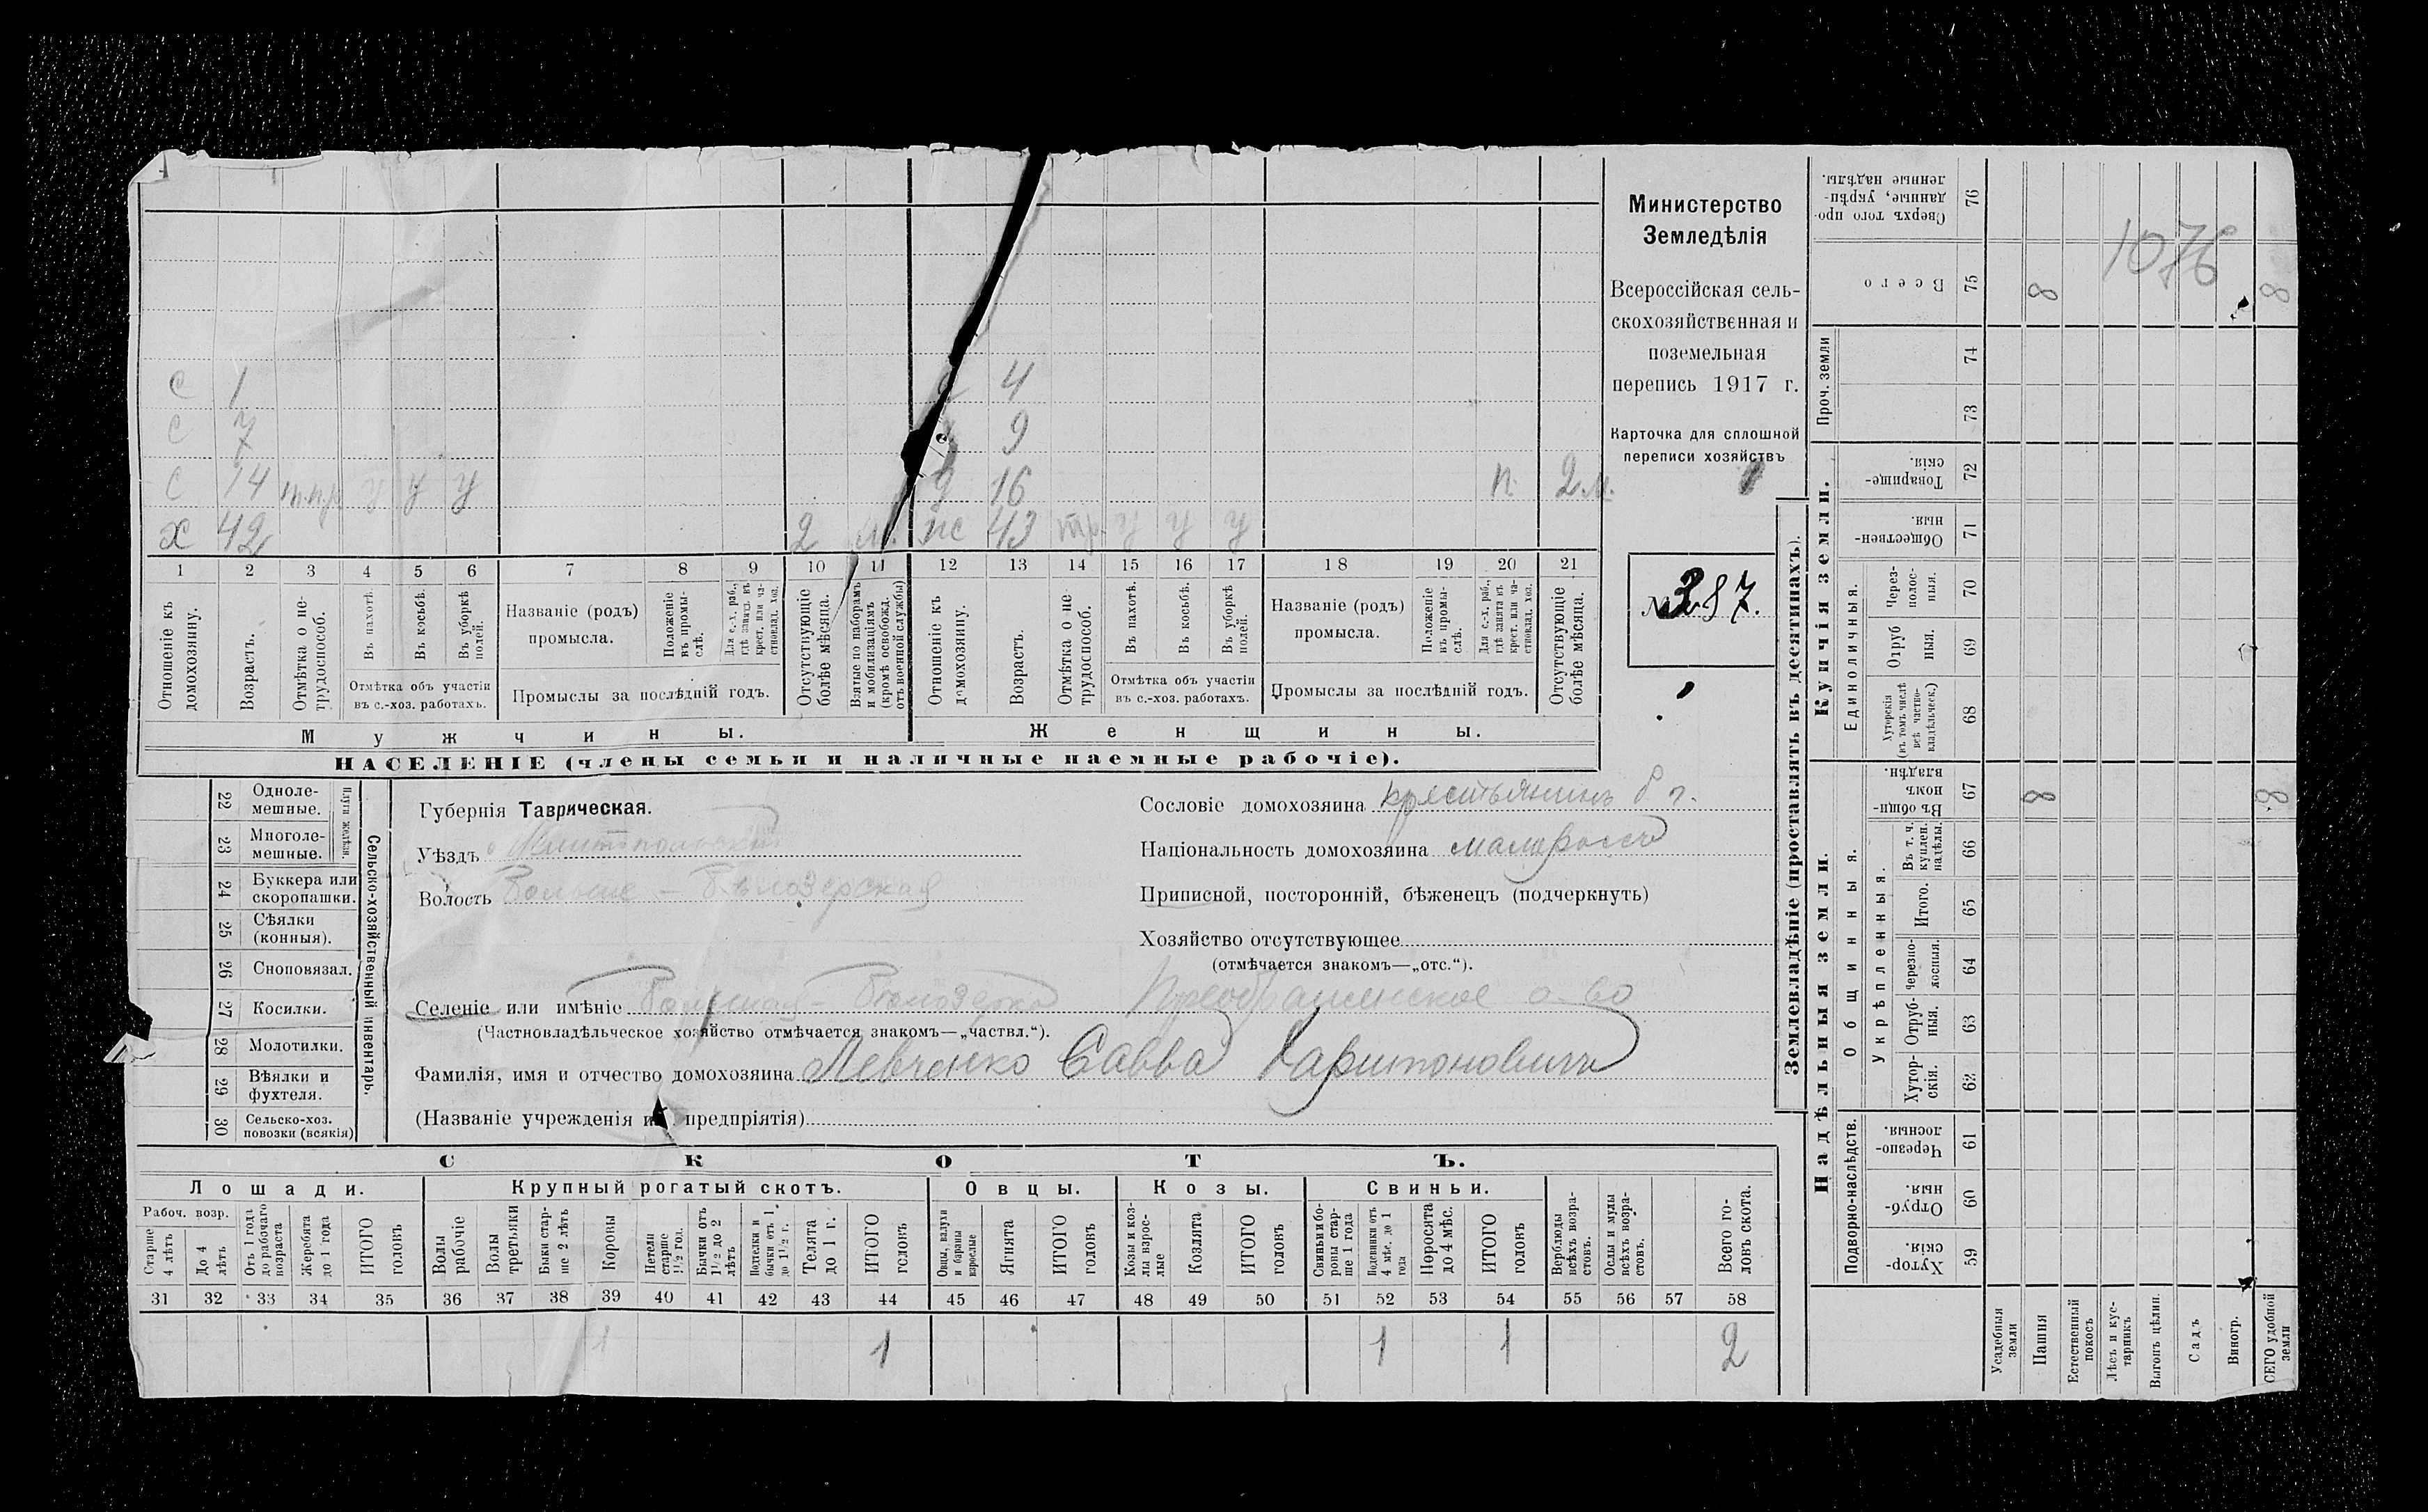 С 1 4
С 7 9
С 14 т.пр. у у у д 16 п. 2 м.
х 42 2 м. же 43 тр. у у у
1 2 3 4 5 6 7 8 9 10 11 12 13 14 15 16 17 18 19 20 21
Отношеніе къ домохозяину.
Возрастъ.
Отмѣтка о не-трудоспособ.
Въ пахотѣ.
Въ косьбѣ.
Въ уборкѣ полей.
Отмѣтка объ участіи въ с.-хоз. работахъ.
Названіе (родъ) промысла.
Положеніе въ промы-слѣ.
Для с.-х. раб., гдѣ занятъ въ крест. или ча-стновлад. хоз.
Промыслы за послѣдній годъ.
Отсутствующіе болѣе мѣсяца.
Взятые по наборамъ и мобилизаціямъ (кромѣ освобожд. отъ военной службы)
Отношеніе къ домохозяину.
Возрастъ.
Отмѣтка о не-трудоспособ.
Въ пахотѣ.
Въ косьбѣ.
Въ уборкѣ полей.
Отмѣтка объ участіи въ с.-хоз. работахъ.
Названіе (родъ) промысла.
Положеніе въ промы-слѣ.
Для с.-х. раб., гдѣ занята въ крест. или ча-стновлад. хоз.
Промыслы за послѣдній годъ.
Отсутствующіе болѣе мѣсяца.
Мужчины. Женщины.
НАСЕЛЕНІЕ (члены семьи и наличные наемные рабочіе).
Министерство
Земледѣлія
Всероссійская сель-
скохозяйственная и
поземельная
перепись 1917 г.
Карточка для сплошной
переписи хозяйствъ
№ 387.
22 Одноле-мешные.
23 Многоле-мешные.
Плуги желѣз.
24 Буккера или скоропашки.
25 Сѣялки (конныя).
26 Сноповязал.
27 Косилки.
28 Молотилки.
29 Вѣялки и фухтеля.
30 Сельско-хоз. повозки (всякія)
Сельско-хозяйственный инвентарь.
Губернія Таврическая.
Уѣздъ Мелитопольскій
Волость Больше-Бѣлозерская
Сословіе домохозяина крестьянинъ
Національность домохозяина малороссъ
Приписной, посторонній, бѣженецъ (подчеркнуть)
Хозяйство отсутствующее
(отмѣчается знакомъ—„отс.“).
Селеніе или имѣніе Большая-Бѣлозерка Преображенское о-во
(Частновладѣльческое хозяйство отмѣчается знакомъ—„частвл.“).
Фамилія, имя и отчество домохозяина Левченко Савва Харитоновичъ
(Названіе учрежденія предпріятія)
СКОТЪ.
Лошади. Крупный рогатый скотъ. Овцы. Козы. Свиньи.
Рабоч. возр.
Старше 4 лѣтъ
До 4 лѣтъ
Отъ 1 года до рабочаго возраста
Жеребята до 1 года
ИТОГО головъ
Волы рабочіе
Волы третьяки
Быки стар-ше 2 лѣтъ
Коровы
Нетели старше 1½ год.
Бычки отъ 1½ до 2 лѣтъ
Подтелки и бычки отъ 1 до 1½ г.
Телята до 1 г.
ИТОГО головъ
Овцы, валухи и бараны взрослые
Ягнята
ИТОГО головъ
Козы и коз-лы взрос-лые
Козлята
ИТОГО головъ
Свиньи и бо-ровы стар-ше 1 года
Подсвинки отъ 4 мѣс. до 1 года
Поросята до 4 мѣс.
ИТОГО головъ
Верблюды всѣхъ возра-стовъ.
Ослы и мулы всѣхъ возра-стовъ.
Всего го-ловъ скота.
31 32 33 34 35 36 37 38 39 40 41 42 43 44 45 46 47 48 49 50 51 52 53 54 55 56 57 58
1 1 1 1 2
Землевладѣніе (проставлять въ десятинахъ).
Сверхъ того про-данные, укрѣп-ленные надѣлы. 76
1076
Всего 75 8 8
Проч. земли 74 73
Купчія земли.
Товарище-скія. 72
Обществен-ныя. 71
Единоличныя.
Через-полос-ныя. 70
Отруб-ныя. 69
Хуторскія (въ томъ числѣ всѣ частно-владѣльческ.) 68
Надѣльныя земли.
Общинныя.
Въ общин-номъ владѣн. 67 8 8
Укрѣпленныя.
Въ т. ч. куплен. надѣлы. 66
Итого. 65
черезпо-лосныя. 64
Отруб-ныя. 63
Хутор-скія. 62
Подворно-наслѣдств.
Черезпо-лосныя. 61
Отруб-ныя. 60
Хутор-скія. 59
Усадебныя земли
Пашня
Естественный покосъ
Лѣсъ и кус-тарникъ
Выгонъ цѣлин.
Садъ
Виногр.
СЕГО удобной земли